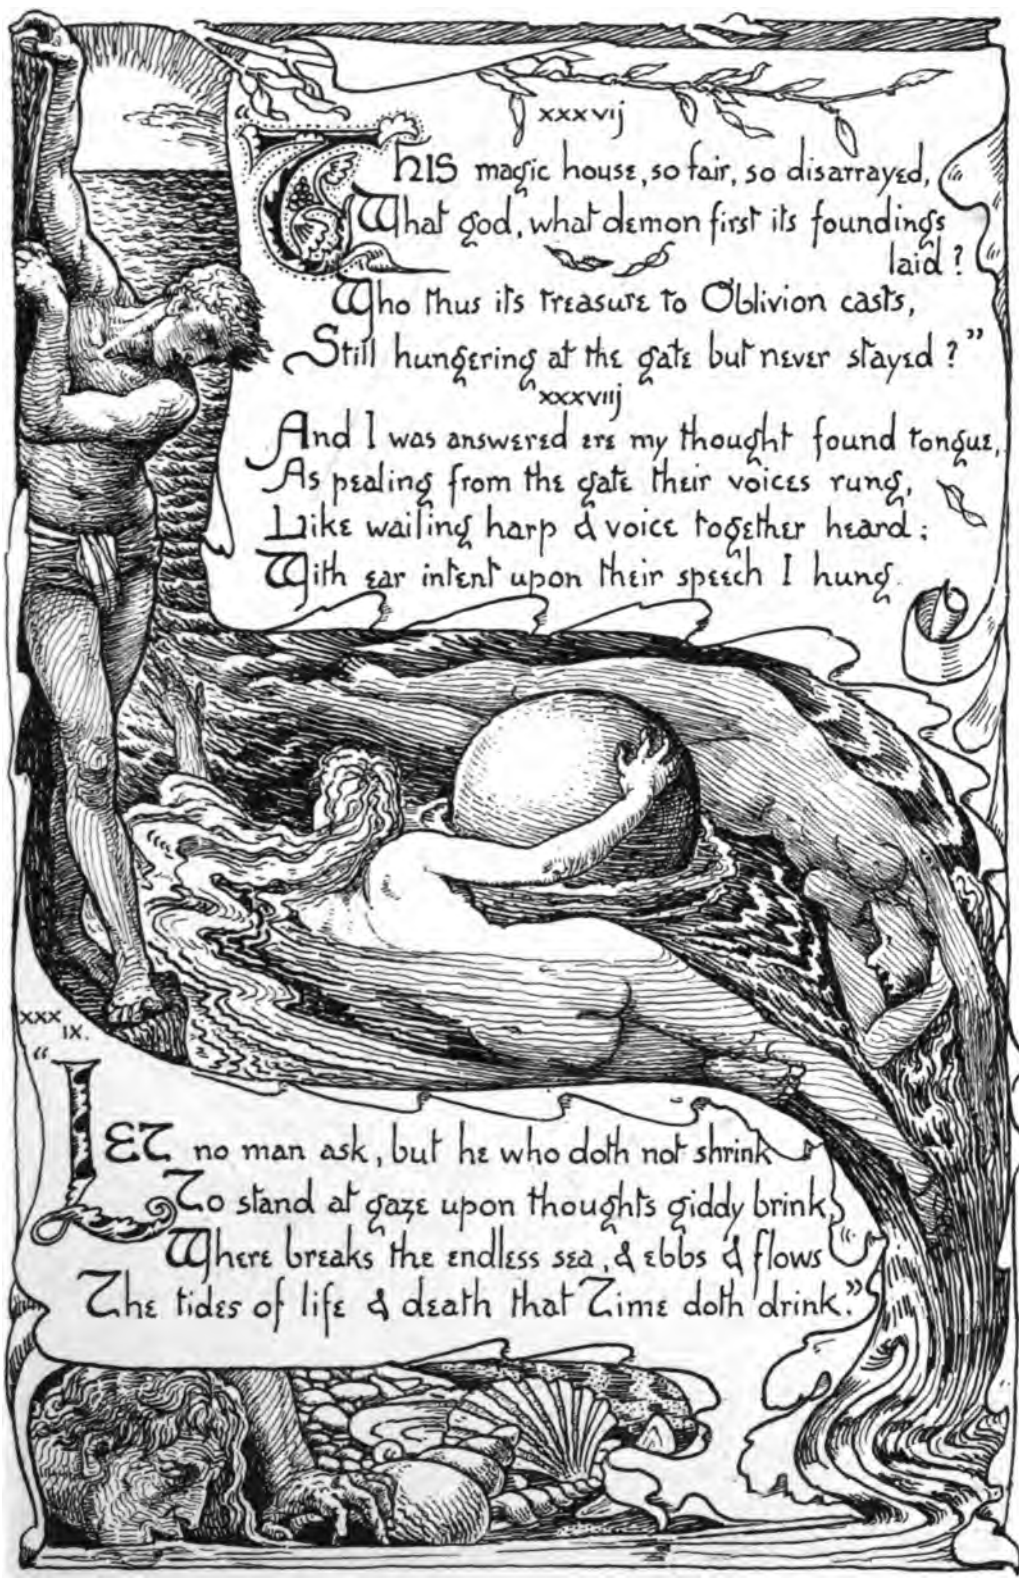 xxxvij
"This magic house, so fair, so disarrayed,
What god, what demon first its foundings
laid?
Who thus its treasure to Oblivion casts,
Still hungering at the gate but never stayed?"
xxxviij
And I was answered ere my thought found tongue,
As pealing from the gate their voices rung,
Like wailing harp & voice together heard:
With ear intent upon their speech I hung.
xxx
ix.
"Let no man ask, but he who doth not shrink
To stand at gaze upon thoughts giddy brink,
Where breaks the endless sea, & ebbs & flows
The tides of life & death that Time doth drink."